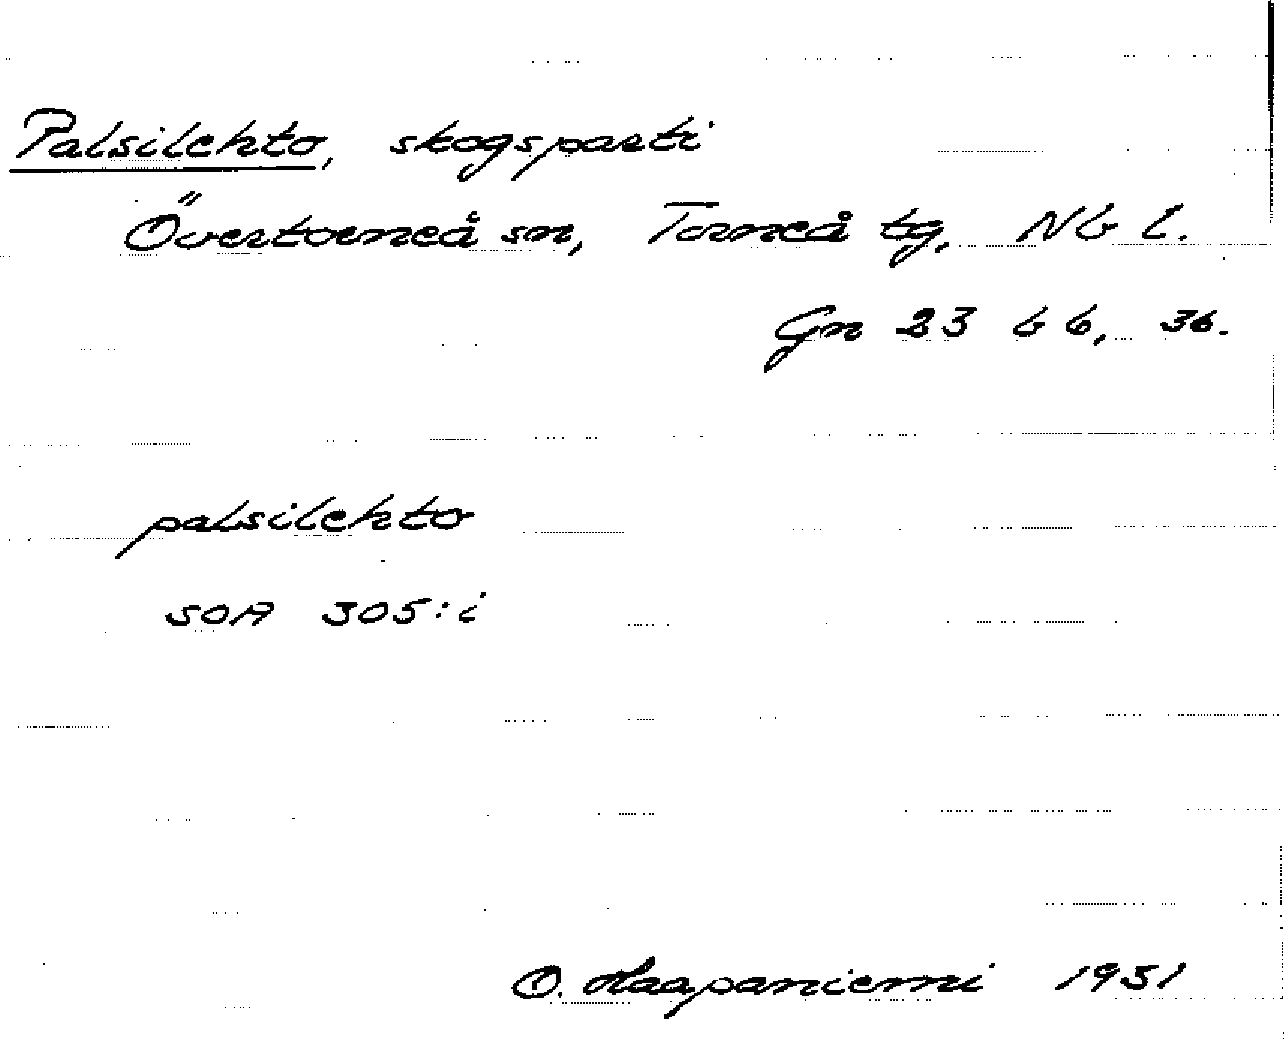 Palsilehto, skogsparti
Övertorneå sn, Torneå tg, Nb l.
Gn 23 b 6, 36.
palsilehto
SOA 305:i
O. Haapaniemi 1951